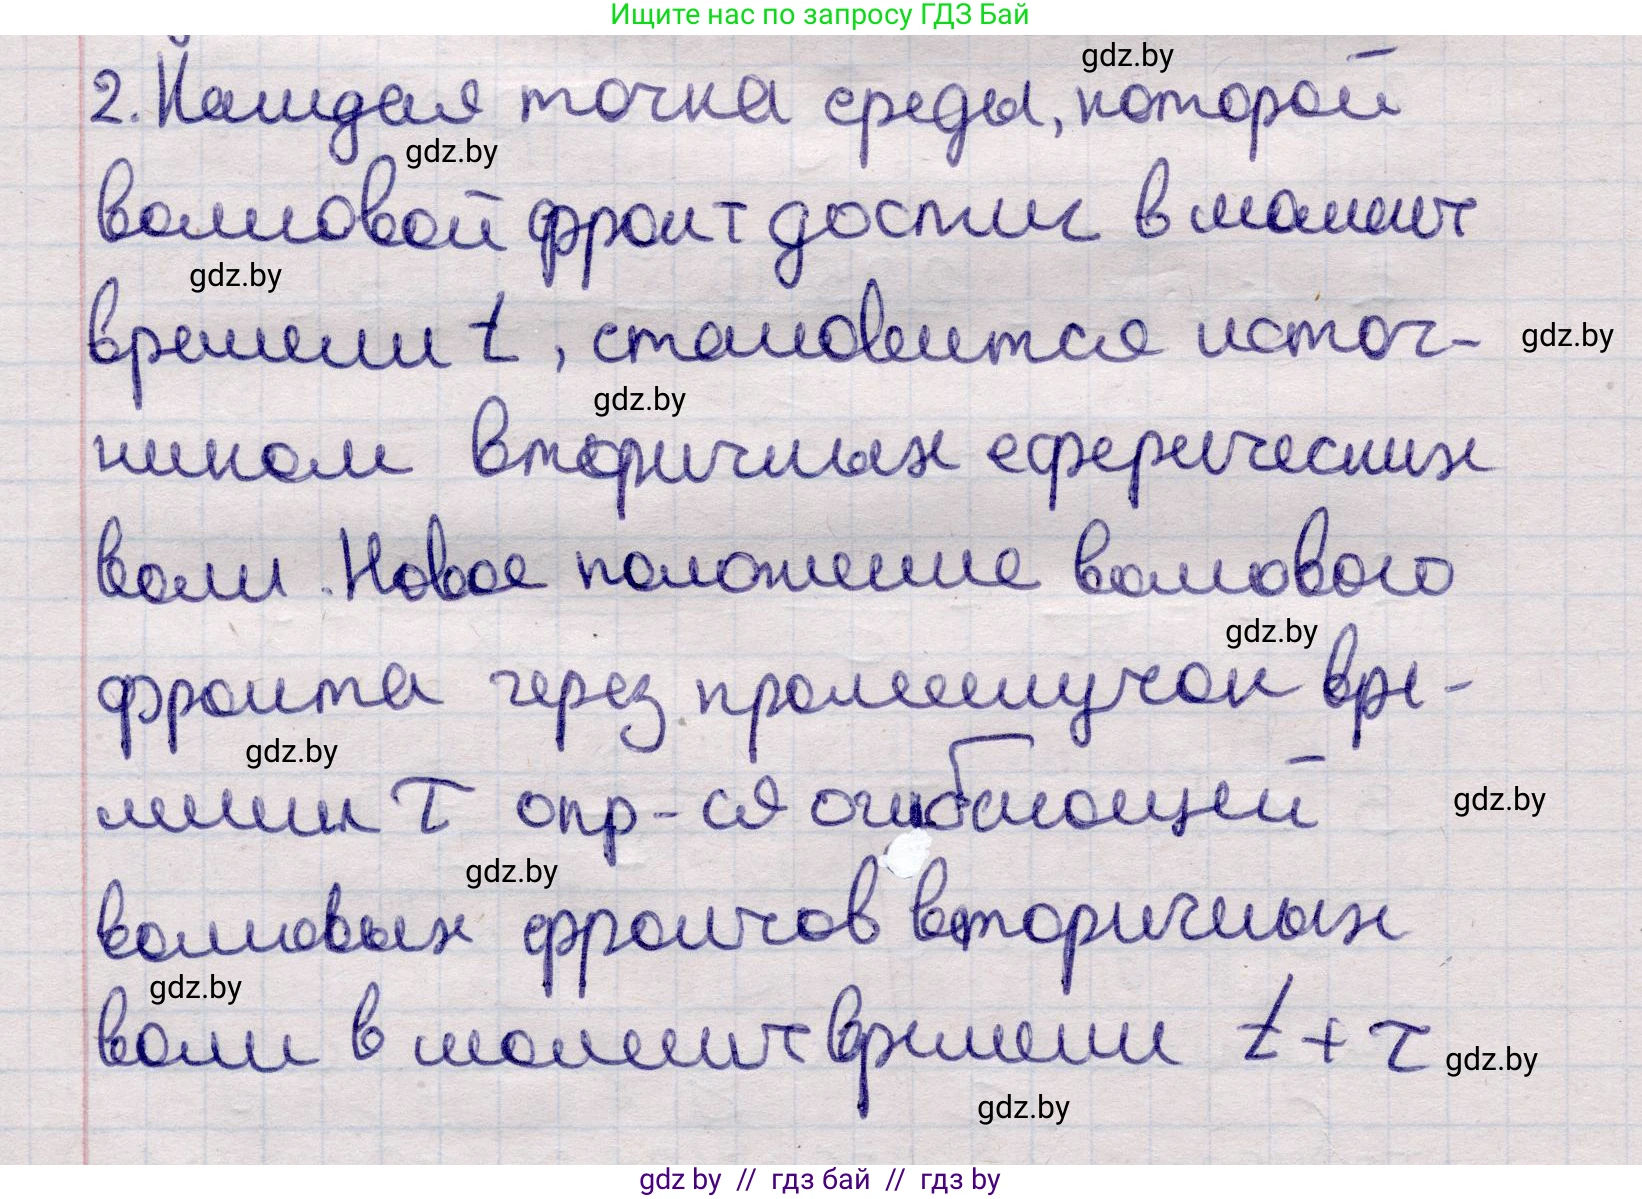 Ищите нас по запросу ГДЗ Бай
gdz.by
2. Каждая точка среды, которой
gdz.by
волновой фронт достиг в момент
gdz.by
времени t, становится источ-
gdz.by
gdz.by
ником вторичных сферических
волн. Новое положение волнового
gdz.by
фронта через промежучок вре-
gdz.by
мени τ опр-ся огибающей
gdz.by
gdz.by
волновых фронтов вторичных
gdz.by
волн в момент времени t + τ
gdz.by
gdz.by
gdz.by // гдз бай // gdz.by